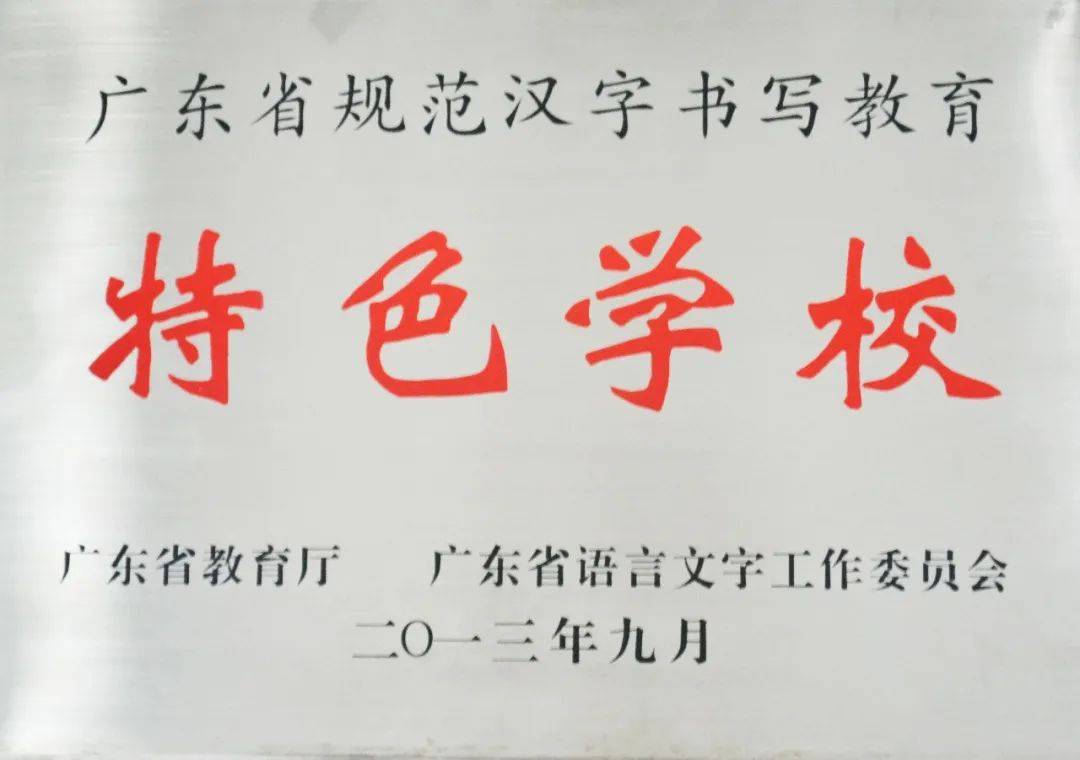 广东省规范汉字书写教育
特色学校
广东省教育厅 广东省语言文字工作委员会
二〇一三年九月